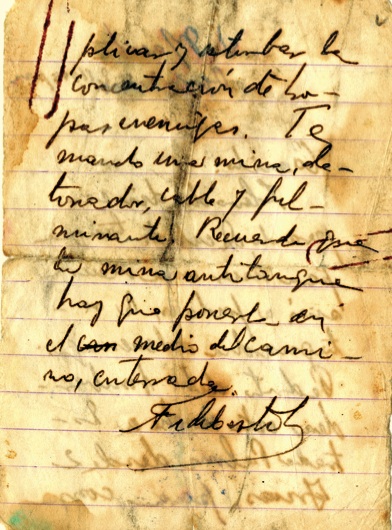 plicar y retumbar la
concentración de tro-
pas enemigas. Te
mando una mina, de-
tonador, cable y ful-
minante. Recuerda que
la mina antitanque
hay que ponerla en
el medio del cami-
no, enterrada.